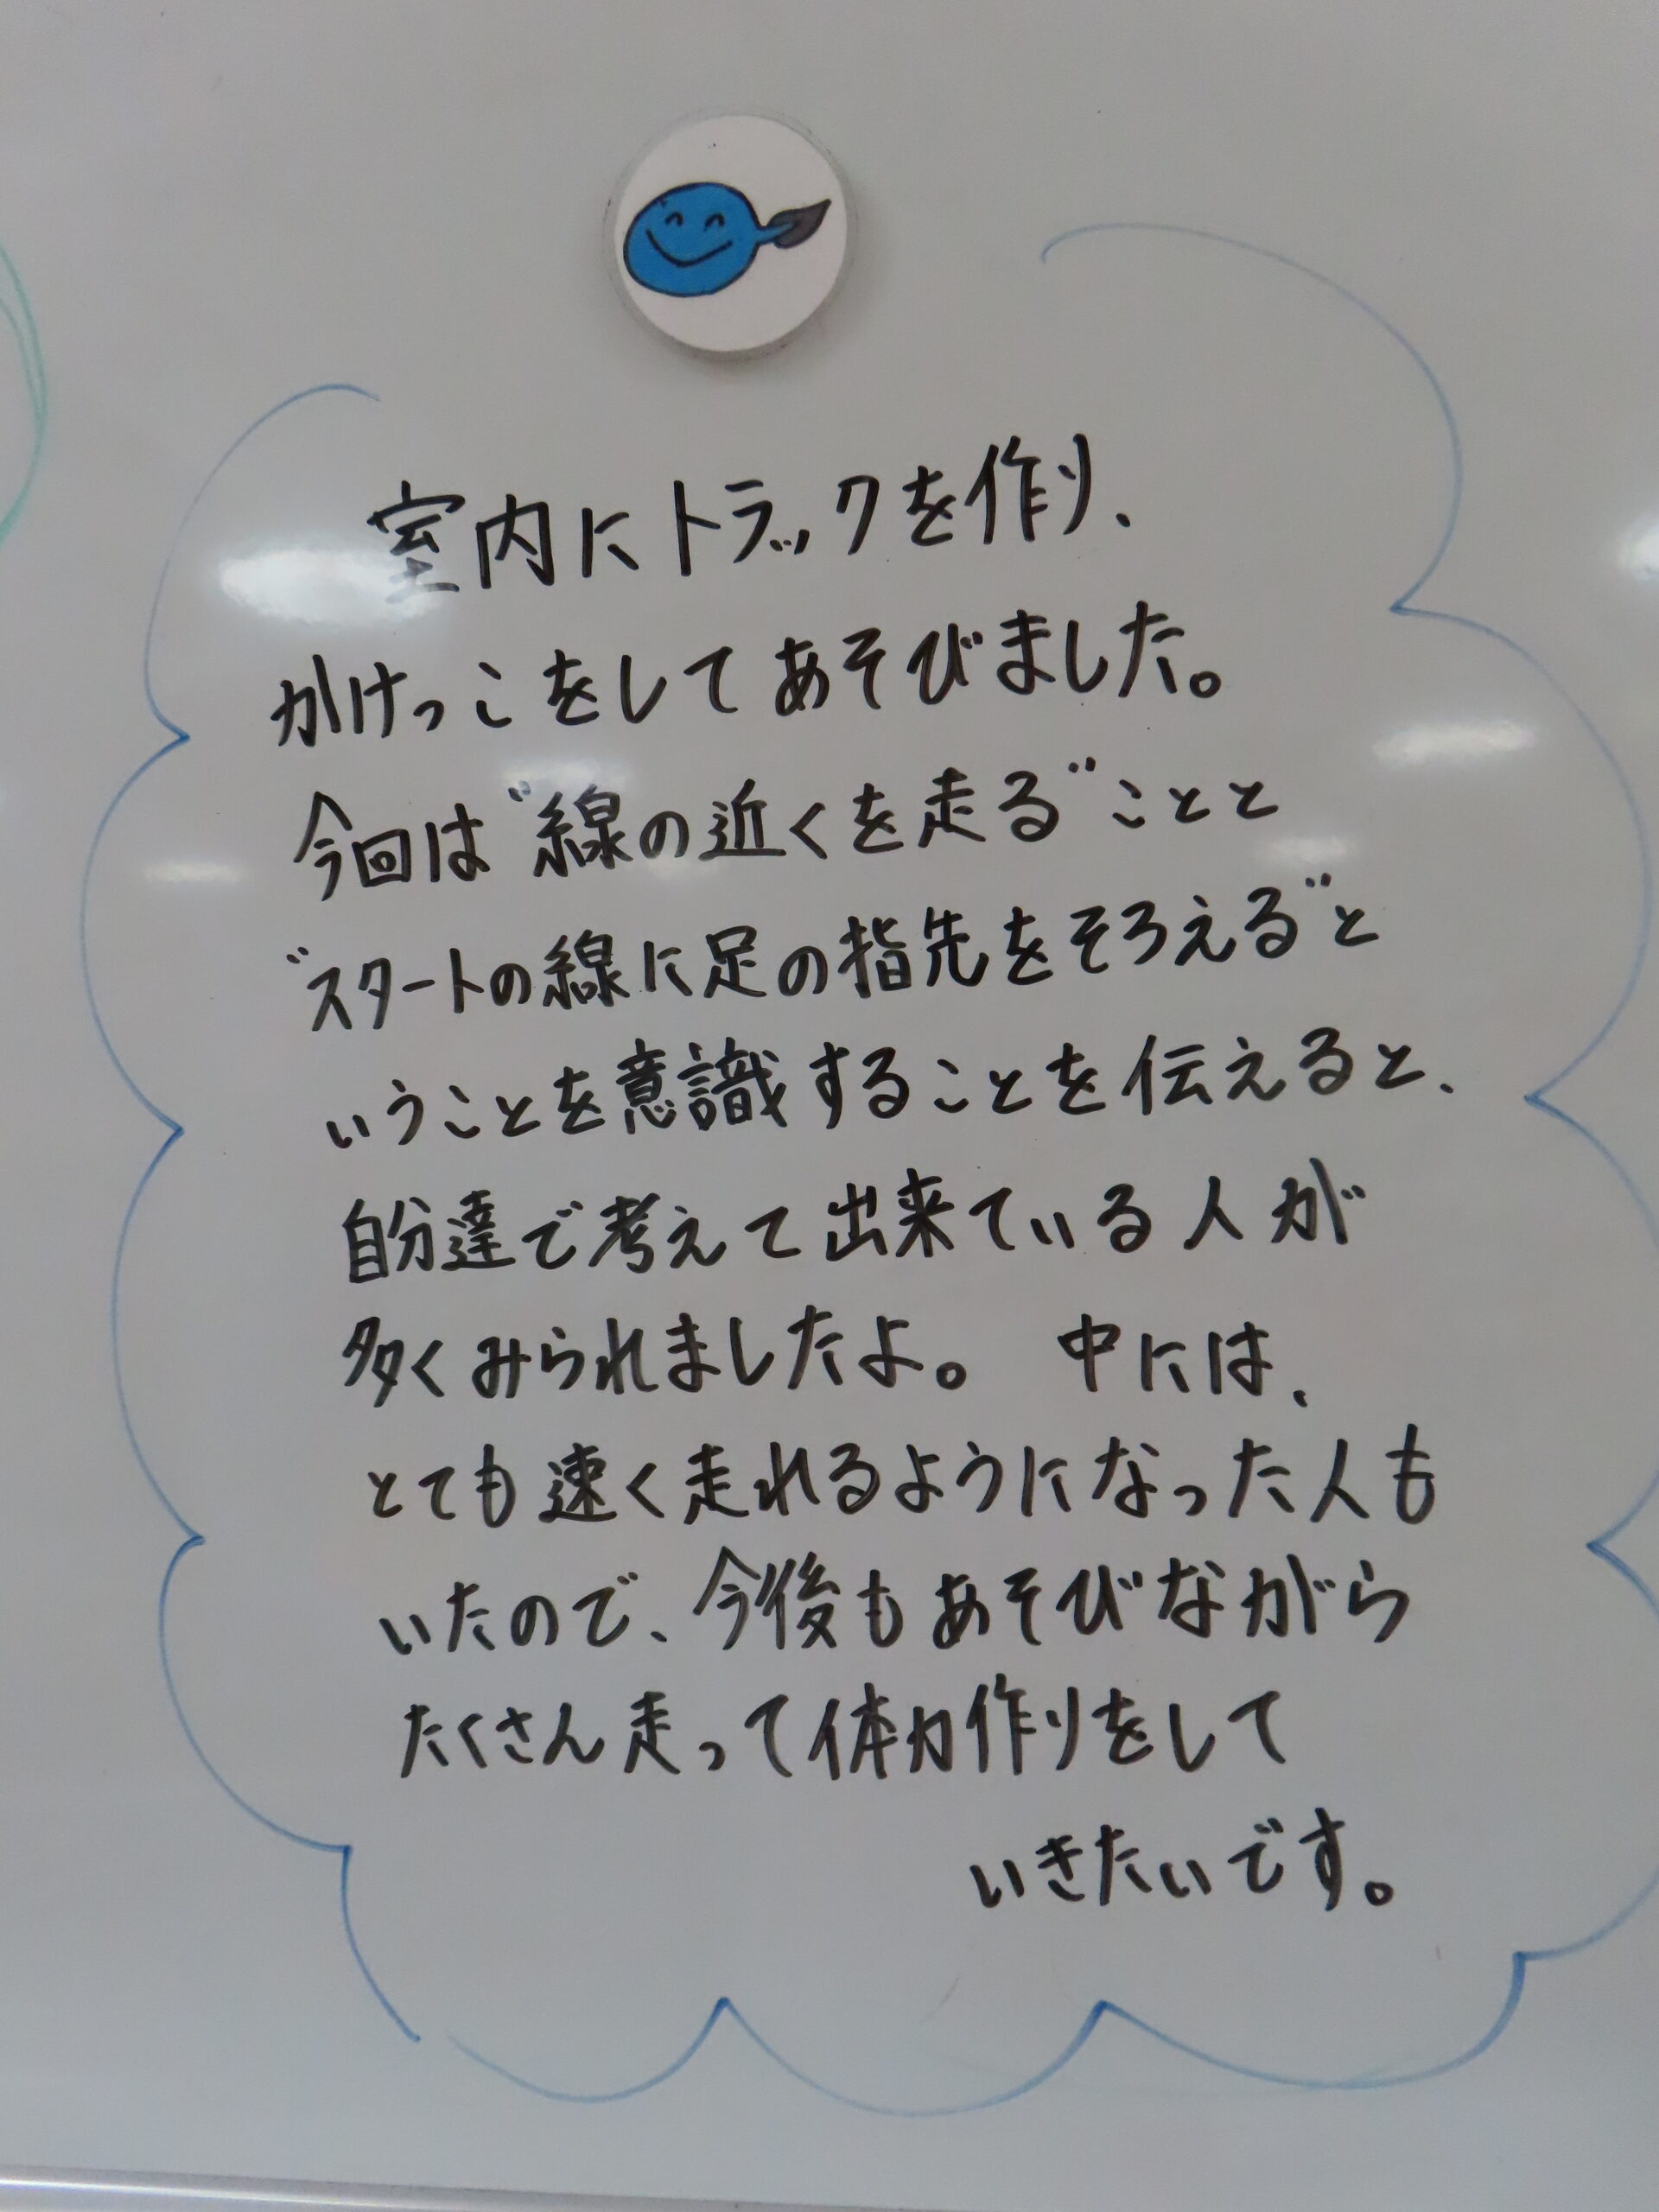 室内にトラックを作り、
かけっこをしてあそびました。
今回は"線の近くを走る"ことと
"スタートの線に足の指先をそろえる"と
いうことを意識することを伝えると、
自分達で考えて出来ている人が
多くみられましたよ。 中には、
とても速く走れるようになった人も
いたので、今後もあそびながら
たくさん走って体力作りをして
いきたいです。